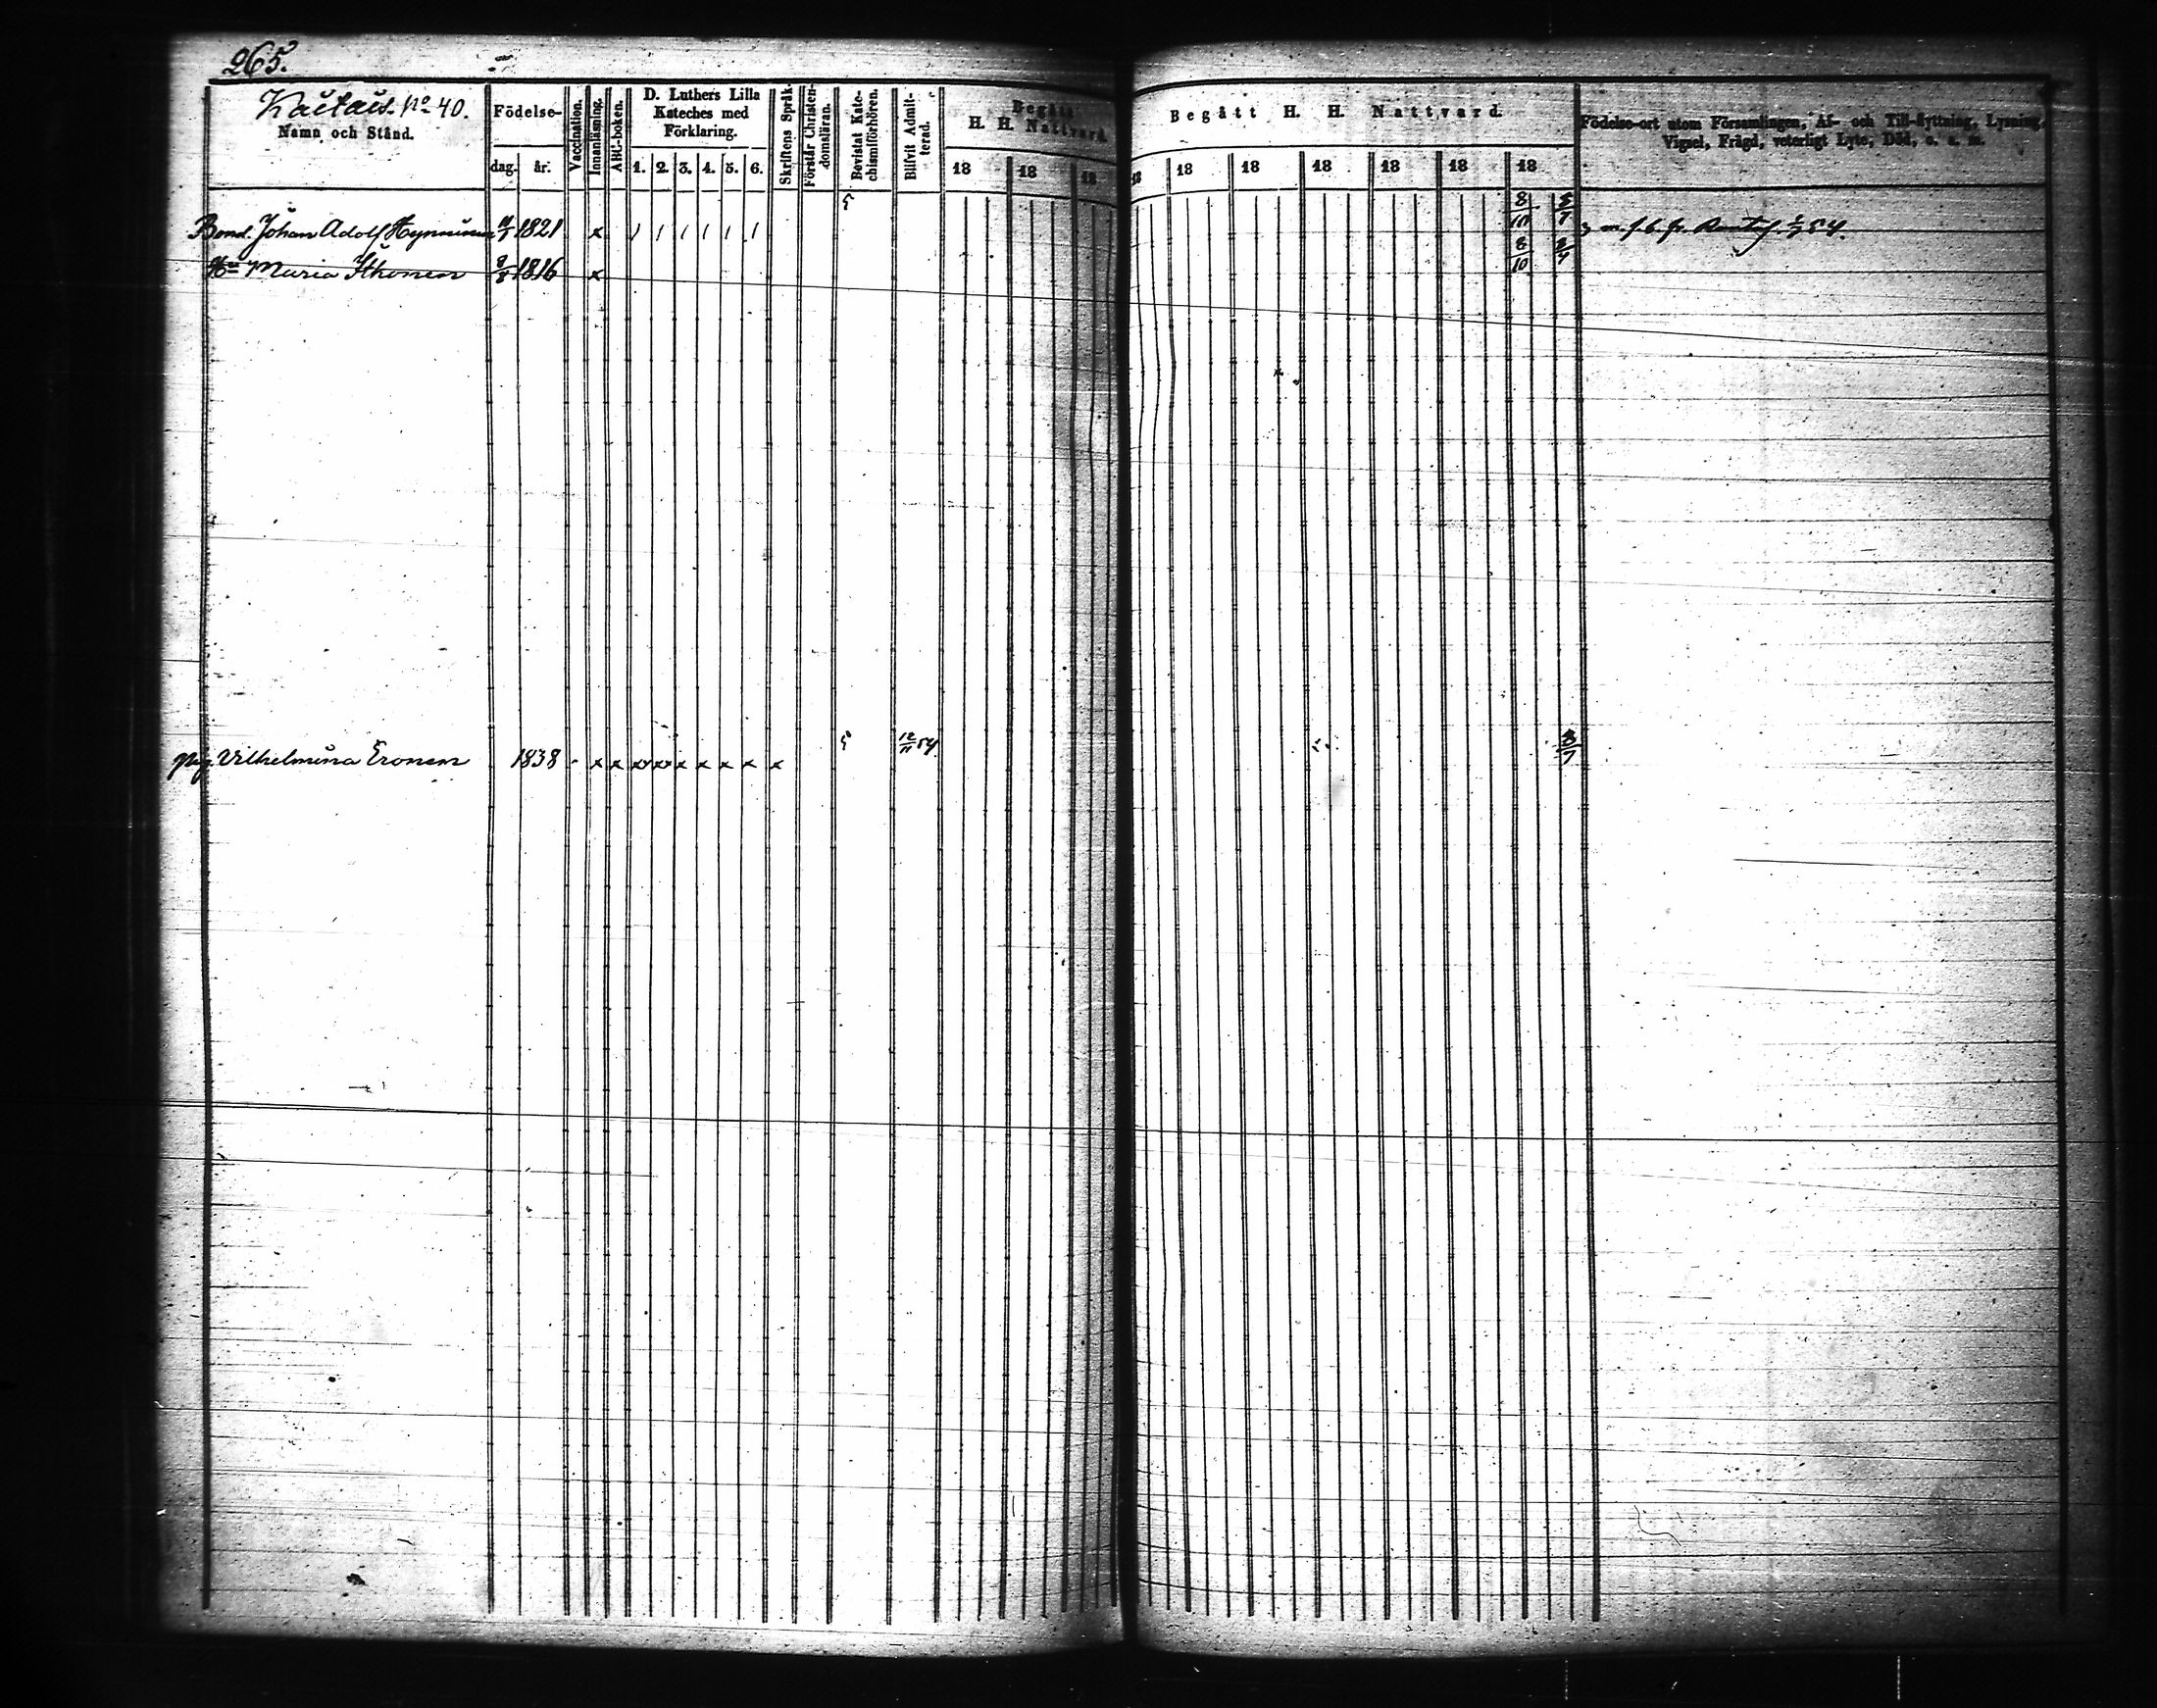 265.
Kaitais. No 40.
Namn och Stånd.
Födelse-
dag. år.
Vaccination.
Innanläsning.
ABC-boken.
D. Luthers Lilla
Kateches med
Förklaring.
1. 2. 3. 4. 5. 6.
Skriftens Språk.
Förstår Christen-
domsläran.
Bevistat Kate-
chismiförhören.
Blifvit Admit-
terad.
Begått
H. H. Nattvard.
18 18 18
Begått H. H. Nattvard.
18 18 18 18 18 18 18
Födelse-ort utom Församlingen, Af- och Till-flyttning, Lysning,
Vigsel, Frägd, veterligt Lyte, Död, o. s. m.
Bond. Johan Adolf Hynninen 1821 x / / / / / / 5 8/10 8/7
Hu Maria Ihonen 8/8 1816 x 8/10 8/7
pig. Vilhelmina Eronen 1838 - x x x x x x x x x 5 12/11 54 8/7